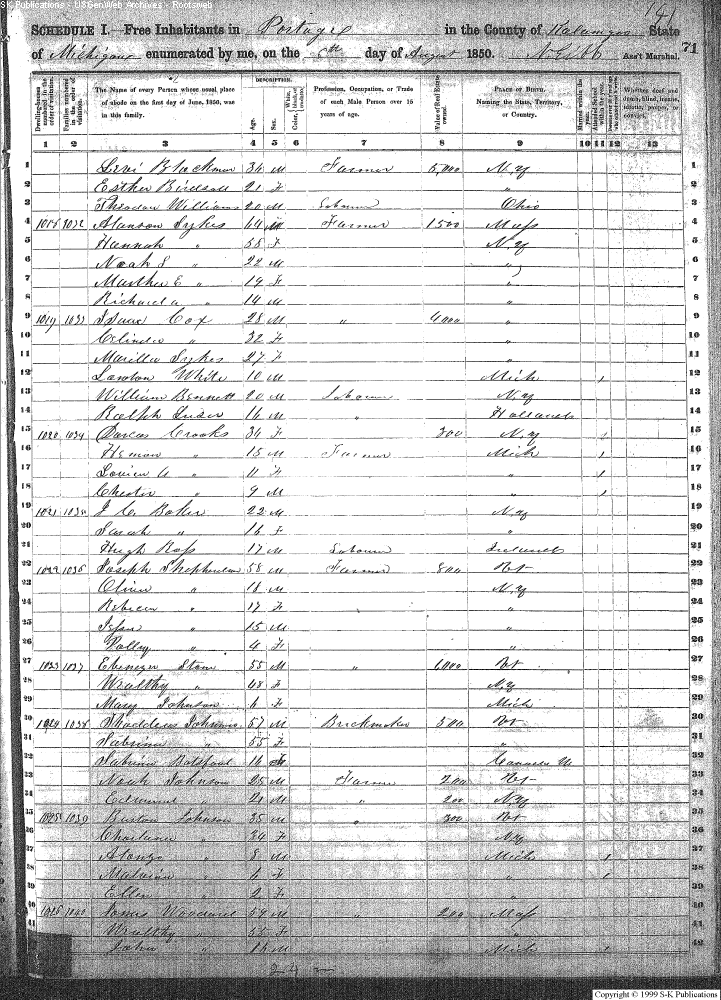 S-K Publications - USGenWeb Archives - Rootsweb
141
SCHEDULE I.—Free Inhabitants in Portage in the County of Kalamazoo State
of Michigan enumerated by me, on the 6th day of August 1850. Ass't Marshal. 71
Dwelling-houses numbered in the order of visitation.
Families numbered in the order of visitation.
The Name of every Person whose usual place of abode on the first day of June, 1850, was in this family.
DESCRIPTION.
Age.
Sex.
Color,
Profession, Occupation, or Trade of each Male Person over 15 years of age.
Value of Real Estate owned.
PLACE OF BIRTH. Naming the State, Territory, or Country.
Married within the year.
Attended School within the year.
Whether deaf and dumb, blind, insane, idiotic, pauper, or convict.
1 2 3 4 5 6 7 8 9 10 11 12 13
1 Levi Blackmar 34 M Farmer 5,000 N.Y 1
2 Esther Birdsall 21 F " 2
3 Williams 20 M Labourer Ohio 3
4 1032 Alanson Sykes 64 M Farmer 1500 Mass 4
5 Hannah " 58 F N.Y 5
6 Noah S " 22 M " 6
7 Martha E " 19 F " 7
8 Richard " 14 M " 8
9 1019 1033 Isaac Cox 28 M " 4000 " 9
10 " 32 F " 10
11 Marilla Sykes 27 F " 11
12 Lawton White 10 M Mich 1 12
13 William Bennett 20 M Labourer N.Y 13
14 Ralph 16 M " Hollands 14
15 1020 1034 Dorcas Crooks 34 F 300 N.Y 1 15
16 Heman " 15 M Farmer Mich 1 16
17 Louisa " 11 F " 1 17
18 Chester " 9 M " 1 18
19 1021 1035 J C Baker 22 M N.Y 19
20 Sarah " 16 F " 20
21 Hugh Ross 17 M Labourer Irelands 21
22 1022 1036 Joseph 58 M Farmer 800 Vt 22
23 Oliver " 18 M N.Y 23
24 Rebecca " 17 F " 24
25 " 15 M " 25
26 Polly " 4 F " 26
27 1023 1037 Ebenezer Stone 55 M " 6000 Vt 27
28 Wealthy " 48 F N.Y 28
29 Mary Johnson 6 F Mich 29
30 1024 1038 Thaddeus Johnson 57 M Brickmaker 500 Vt 30
31 Sabrina " 55 F " 31
32 Sabrina Botsford 16 F Canada 32
33 Noah Johnson 25 M Farmer 200 Vt 33
34 Edmund " 21 M " 200 N.Y 34
35 1025 1039 Burton Johnson 35 M " 300 Vt 35
36 " 34 F N.Y 36
37 Alonzo " 8 M Mich 1 37
38 " 6 F " 1 38
39 Ellen " 2 F " 39
40 1026 1040 Woodard 59 M " 200 Mass 40
41 Wealthy " 55 F " 41
42 John " 16 M Mich 1 42
Copyright © 1999 S-K Publications